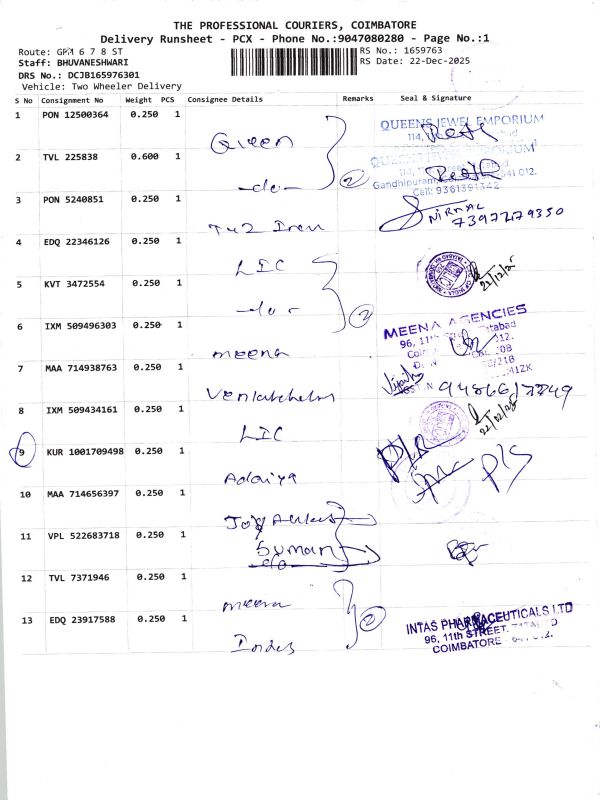 THE PROFESSIONAL COURIERS, COIMBATORE
Delivery Runsheet - PCX - Phone No.:9047080280 - Page No.:1
Route: GPM 6 7 8 ST
RS No.: 1659763
Staff: BHUVANESHWARI
RS Date: 22-Dec-2025
DRS No.: DCJB165976301
Vehicle: Two Wheeler Delivery
S No Consignment No Weight PCS Consignee Details Remarks Seal & Signature
1 PON 12500364 0.250 1
Queen
QUEENS JEWEL EMPORIUM
114,
2 TVL 225838 0.600 1
-do- 2
QUEENS JEWEL EMPORIUM
Gandhipuram, 641 012.
Cell: 9361391342
3 PON 5240851 0.250 1
NIRMAL
7397279350
4 EDQ 22346126 0.250 1
LIC
22/12/25
5 KVT 3472554 0.250 1
-do- 2
6 IXM 509496303 0.250 1
meena
MEENA AGENCIES
96, 11th
7 MAA 714938763 0.250 1
9486617249
8 IXM 509434161 0.250 1
LIC
22/12/25
9 KUR 1001709498 0.250 1
10 MAA 714656397 0.250 1
11 VPL 522683718 0.250 1
Suman
12 TVL 7371946 0.250 1
meena 2
13 EDQ 23917588 0.250 1
INTAS PHARMACEUTICALS LTD
96, 11th STREET,
COIMBATORE